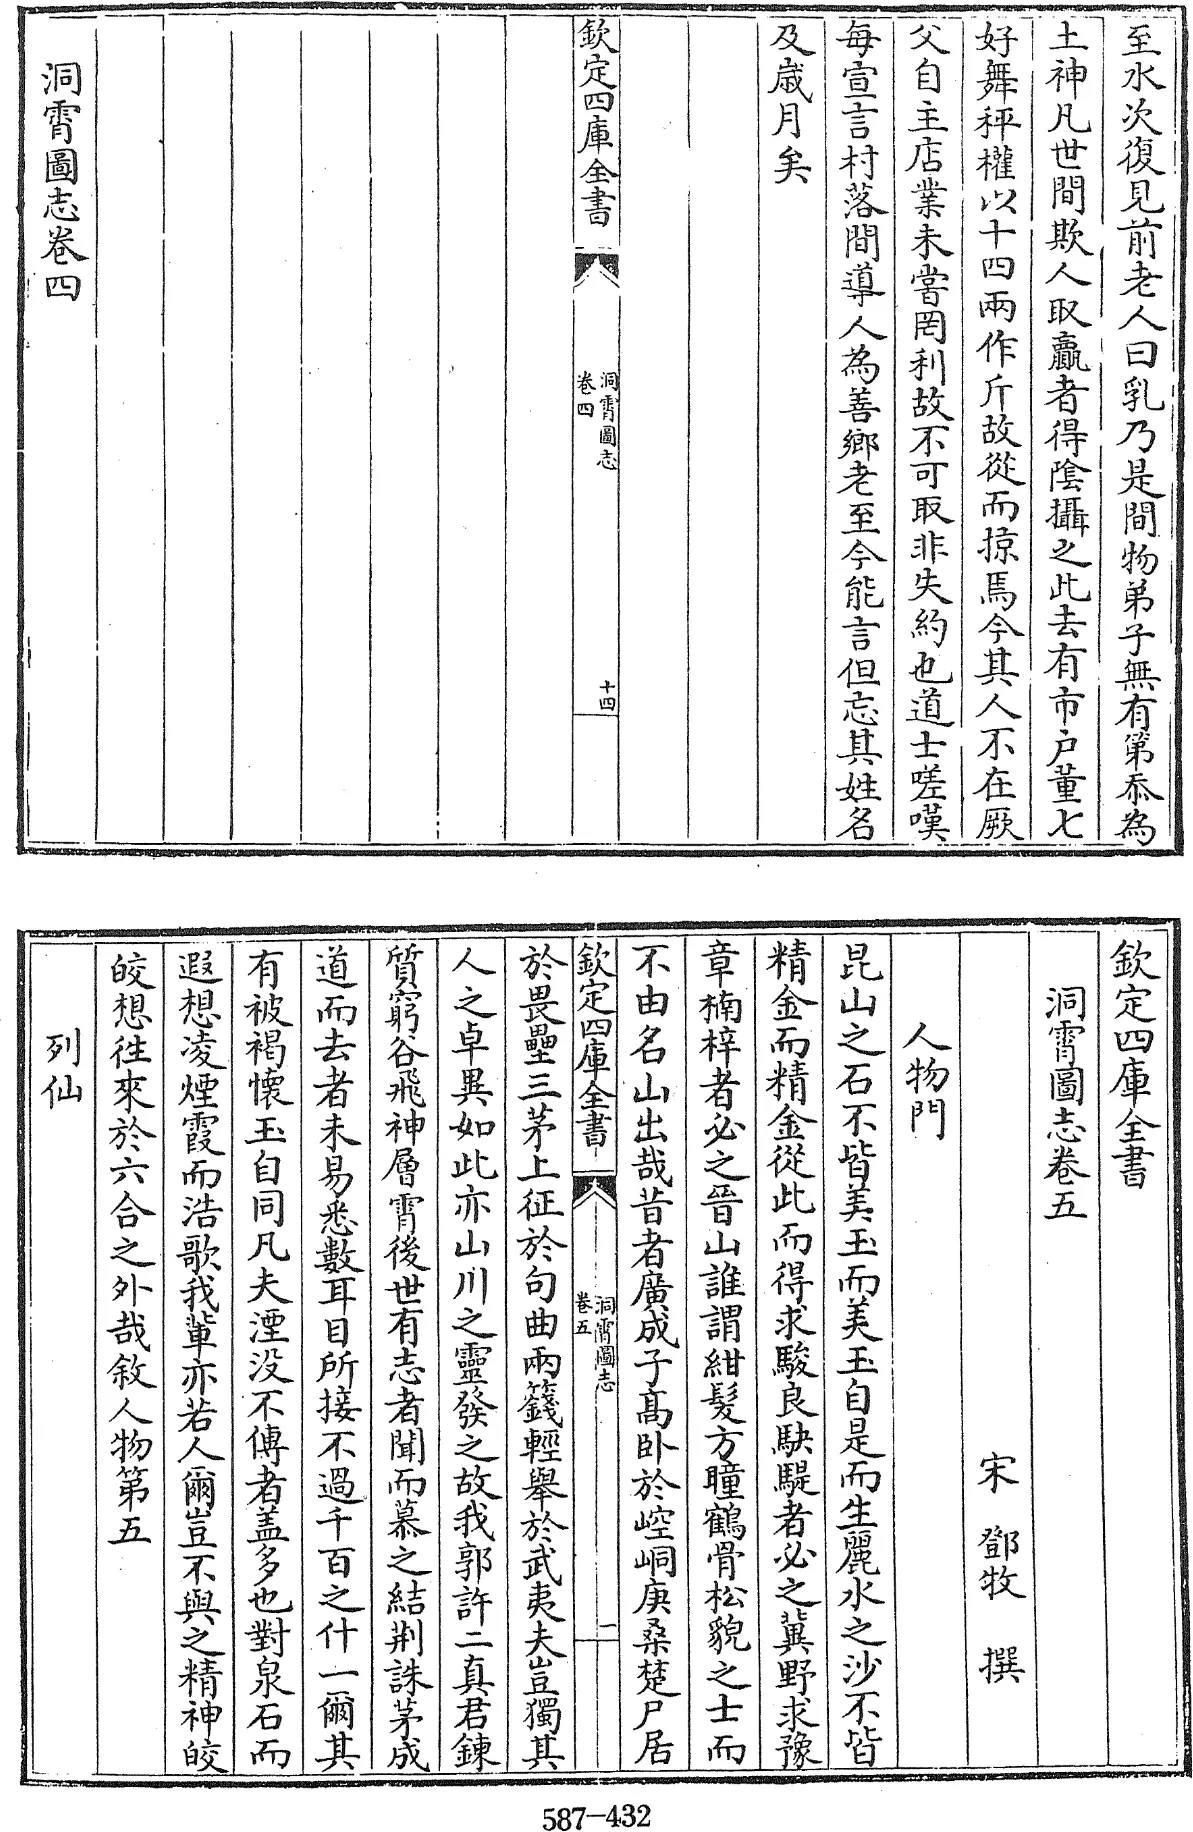 至水次復見前老人曰乳乃是間物弟子無有第忝為
土神凡世間欺人取贏者得陰攝之此去有市户董七
好舞秤權以十四兩作斤故從而掠焉今其人不在厥
父自主店業未嘗罔利故不可取非失約也道士嗟嘆
每宣言村落間導人為善鄉老至今能言但忘其姓名
及歲月矣
欽定四庫全書
洞霄圖志
卷四
十四
洞霄圖志卷四
欽定四庫全書
洞霄圖志卷五
宋 鄧牧 撰
人物門
昆山之石不皆美玉而美玉自是而生麗水之沙不皆
精金而精金從此而得求駿良駃騠者必之冀野求豫
章楠梓者必之晉山誰謂紺髮方瞳鶴骨松貌之士而
不由名山出哉昔者廣成子髙卧於崆峒庚桑楚尸居
欽定四庫全書
洞霄圖志
卷五
一
於畏壘三茅上征於句曲兩籛輕舉於武夷夫豈獨其
人之卓異如此亦山川之靈發之故我郭許二真君鍊
質窮谷飛神層霄後世有志者聞而慕之結荆誅茅成
道而去者未易悉數耳目所接不過千百之什一爾其
有被褐懷玉自同凡夫湮没不傳者盖多也對泉石而
遐想凌煙霞而浩歌我輩亦若人爾豈不與之精神皎
皎想徃來於六合之外哉敘人物第五
列仙
587-432